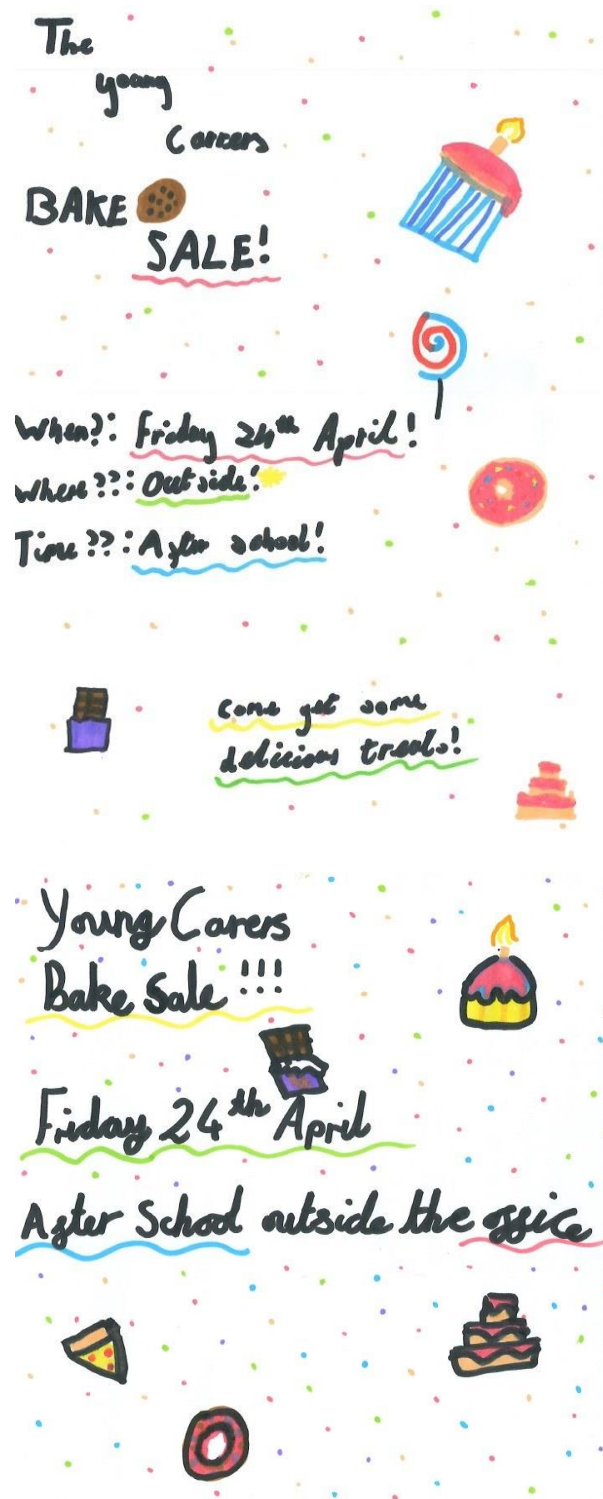 The
young
Carers
BAKE
SALE!
When?: Friday 24th April!
Where??: Outside!
Time??: After school!
come get some
delicious treats!
Young Carers
Bake Sale !!!
Friday 24th April
After School outside the office